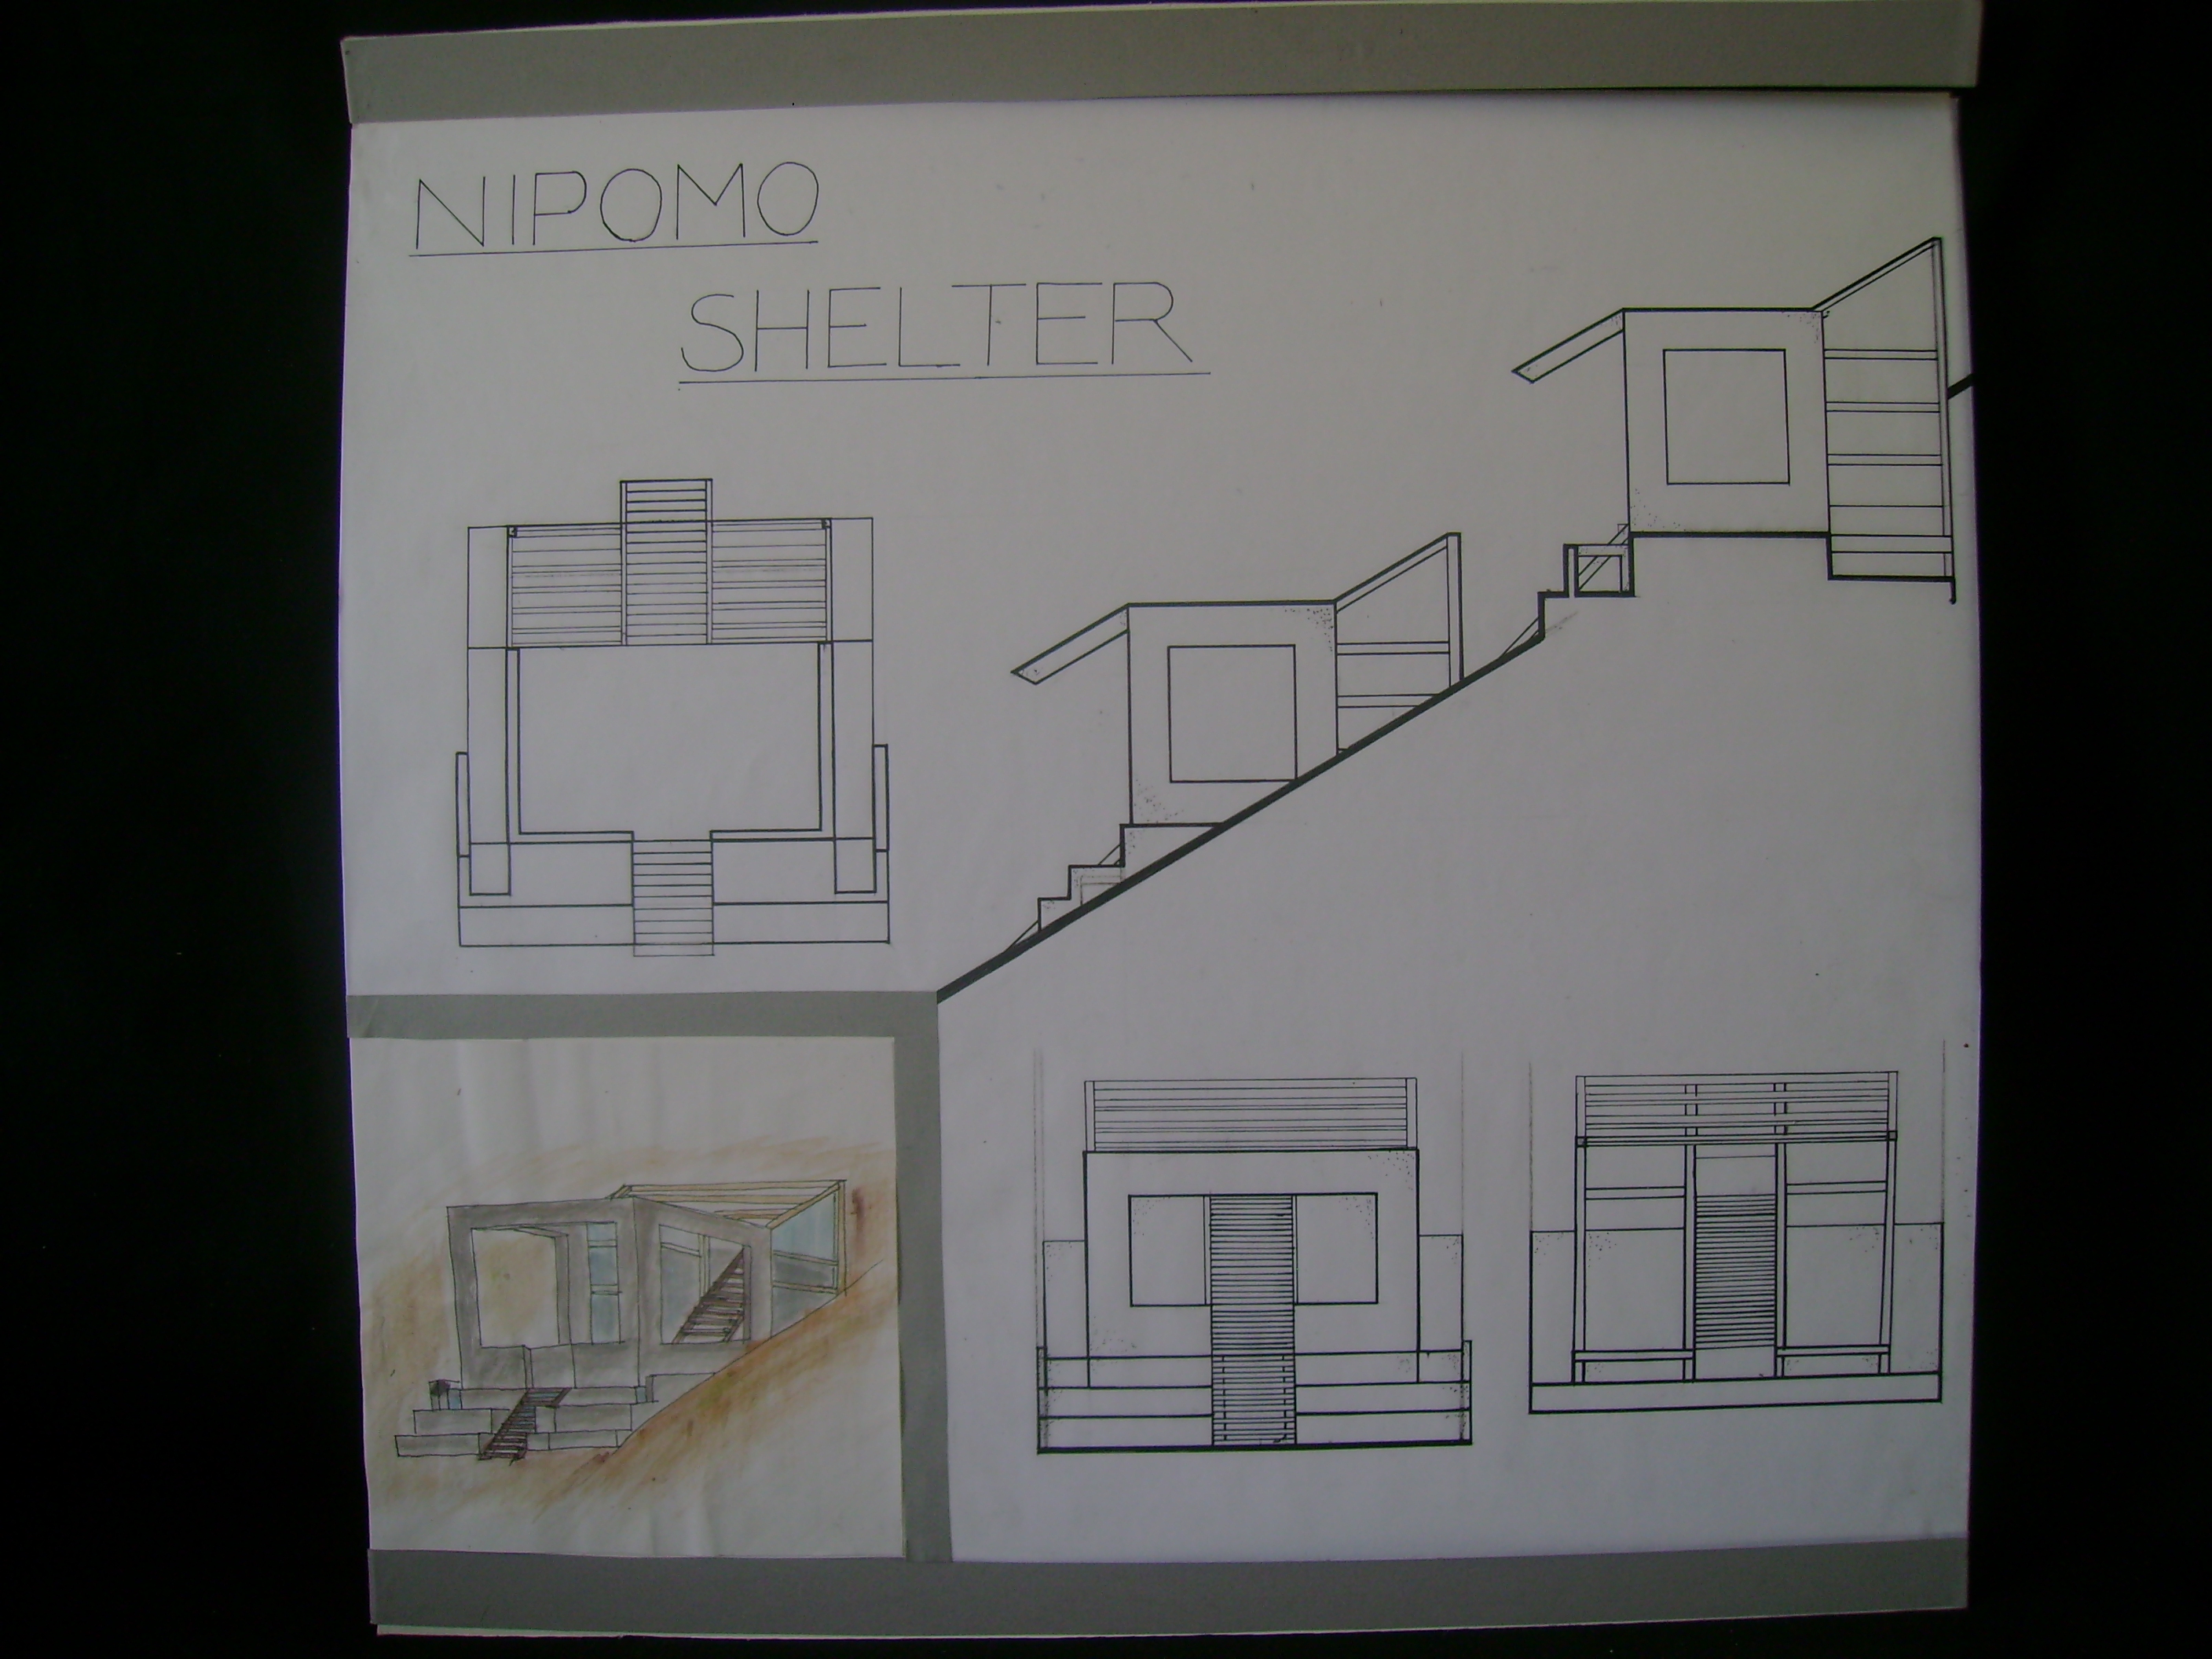 NIPOMO
SHELTER